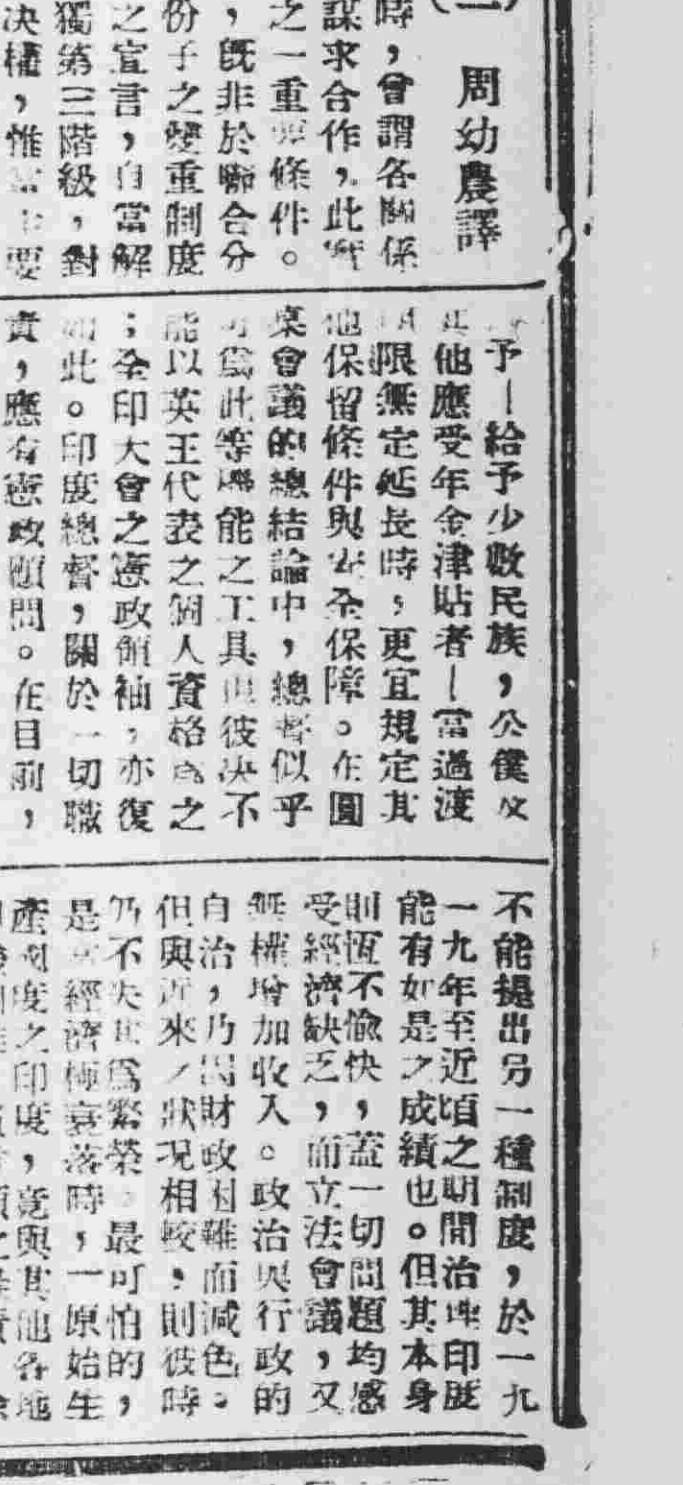 （一　周幼農譯
時，曾謂各關係
謀求合作，此
之一重要條件。
，旣非於聯合分
份子之變重制度
之宣言，自當解
獨第三階級，對
决權，惟　主要
予—給予少數民族，公僕及
其他應受年金津貼者—當過渡
期限無定延長時，更宜規定其
他保留條件與安全保障。在圓
桌會議的總結論中，總督似乎
可爲此等職能之工具但彼决不
能以英王代表之個人資格爲之
；全印大會之憲政領袖，亦復
如此。印度總督，關於一切職
責，應有憲政顧問。在目前，
不能提出另一種制度，於一九
一九年至近頃之期間治理印度
能有如是之成績也。但其本身
則恆不愉快，蓋一切問題均感
受經濟缺乏，而立法會議，又
無權增加收入。政治與行政的
自治，乃因財政困難而減色。
但與近來之狀况相較，則彼時
仍不失其爲繁榮。最可怕的，
是　經濟極衰落時，一原始生
產制度之印度，竟與其他各地